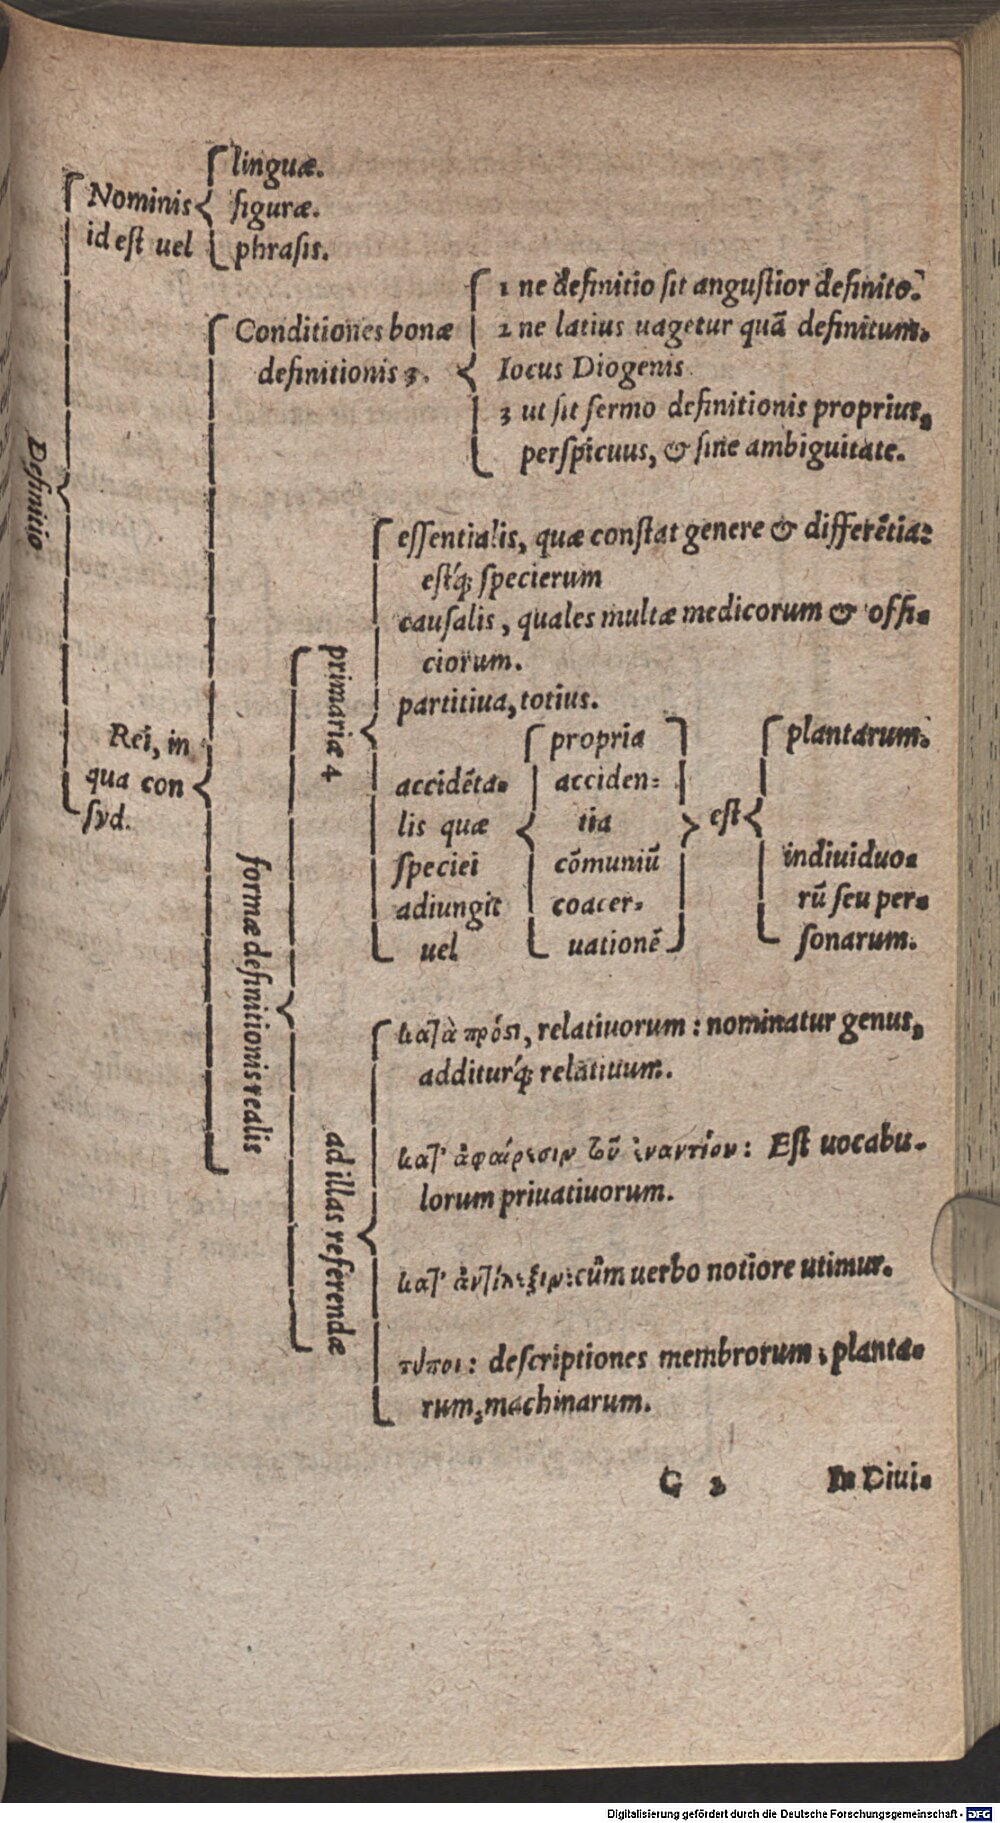 Definitio
Nominis
id est uel
linguæ.
figuræ.
phrasis.
Rei, in
qua con
syd.
Conditiones bonæ
definitionis 3.
1 ne definitio sit angustior definito.
2 ne latius uagetur quā definitum.
Iocus Diogenis
3 ut sit sermo definitionis proprius,
perspicuus, & sine ambiguitate.
formæ definitionis realis
primariæ 4
essentialis, quæ constat genere & differētia:
estq́; specierum
causalis, quales multæ medicorum & offi-
ciorum.
partitiua, totius.
accidēta-
lis quæ
speciei
adiungit
uel
propria
acciden-
tia
cōmuniū
coacer-
uationē
est
plantarum.
indiuiduo-
rū seu per-
sonarum.
ad illas referendæ
κατὰ πρόστι, relatiuorum: nominatur genus,
additurq́; relatiuum.
κατ' ἀφαίρεσιν τοῦ ἐναντίου: Est uocabu-
lorum priuatiuorum.
κατ' ἀντίλεξιν: cūm uerbo notiore utimur.
τύποι: descriptiones membrorum, planta-
rum, machinarum.
G 2
In Diui-
Digitalisierung gefördert durch die Deutsche Forschungsgemeinschaft - DFG